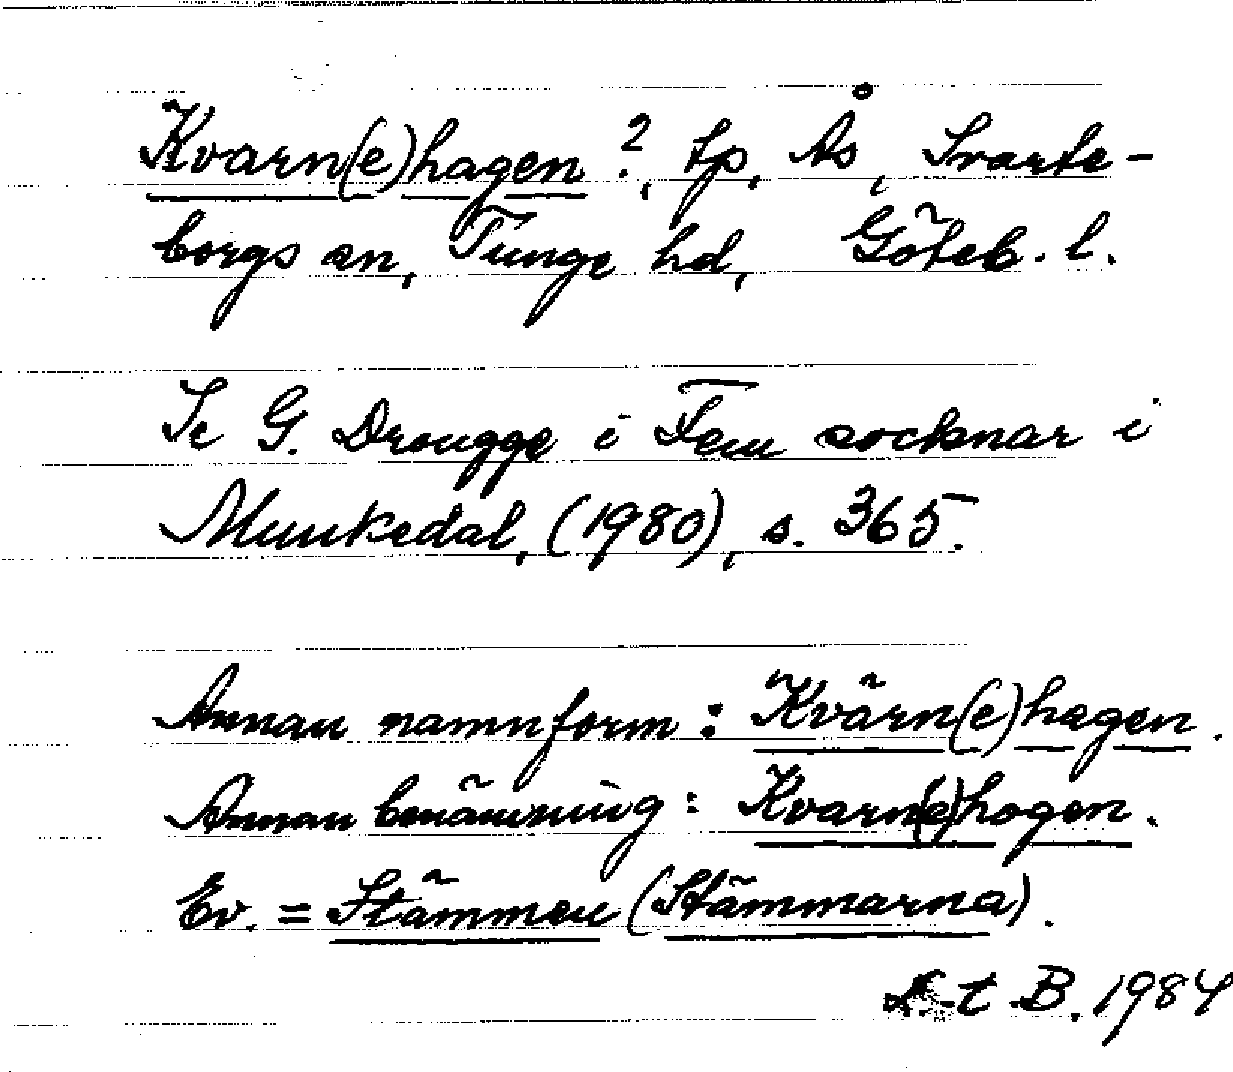 Kvarn(e)hagen ?, tp, Ås, Svarte-
borgs sn, Tunge hd, Göteb. l.
Se G. Drougge i Fem socknar i
Munkedal, (1980), s. 365.
Annan namnform : Kvärn(e)hagen.
Annan benämning : Kvarn(e)hogen.
Ev. = Stämmen (Stämmarna).
B. 1984